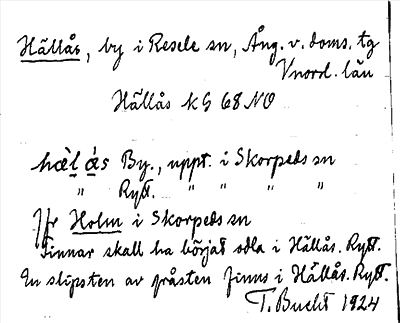 Hällås, by i Resele sn, Ång. v. doms. tg
Vnord. län
Hällås kG 68 NO
hæ̀l ås By., uppt. i Skorpeds sn
" Rytt. " " " "
Jfr Holm i Skorpeds sn
Finnar skall ha börjat odla i Hällås. Rytt.
En slipsten av gråsten finns i Hällås. Rytt.
T. Bucht 1924